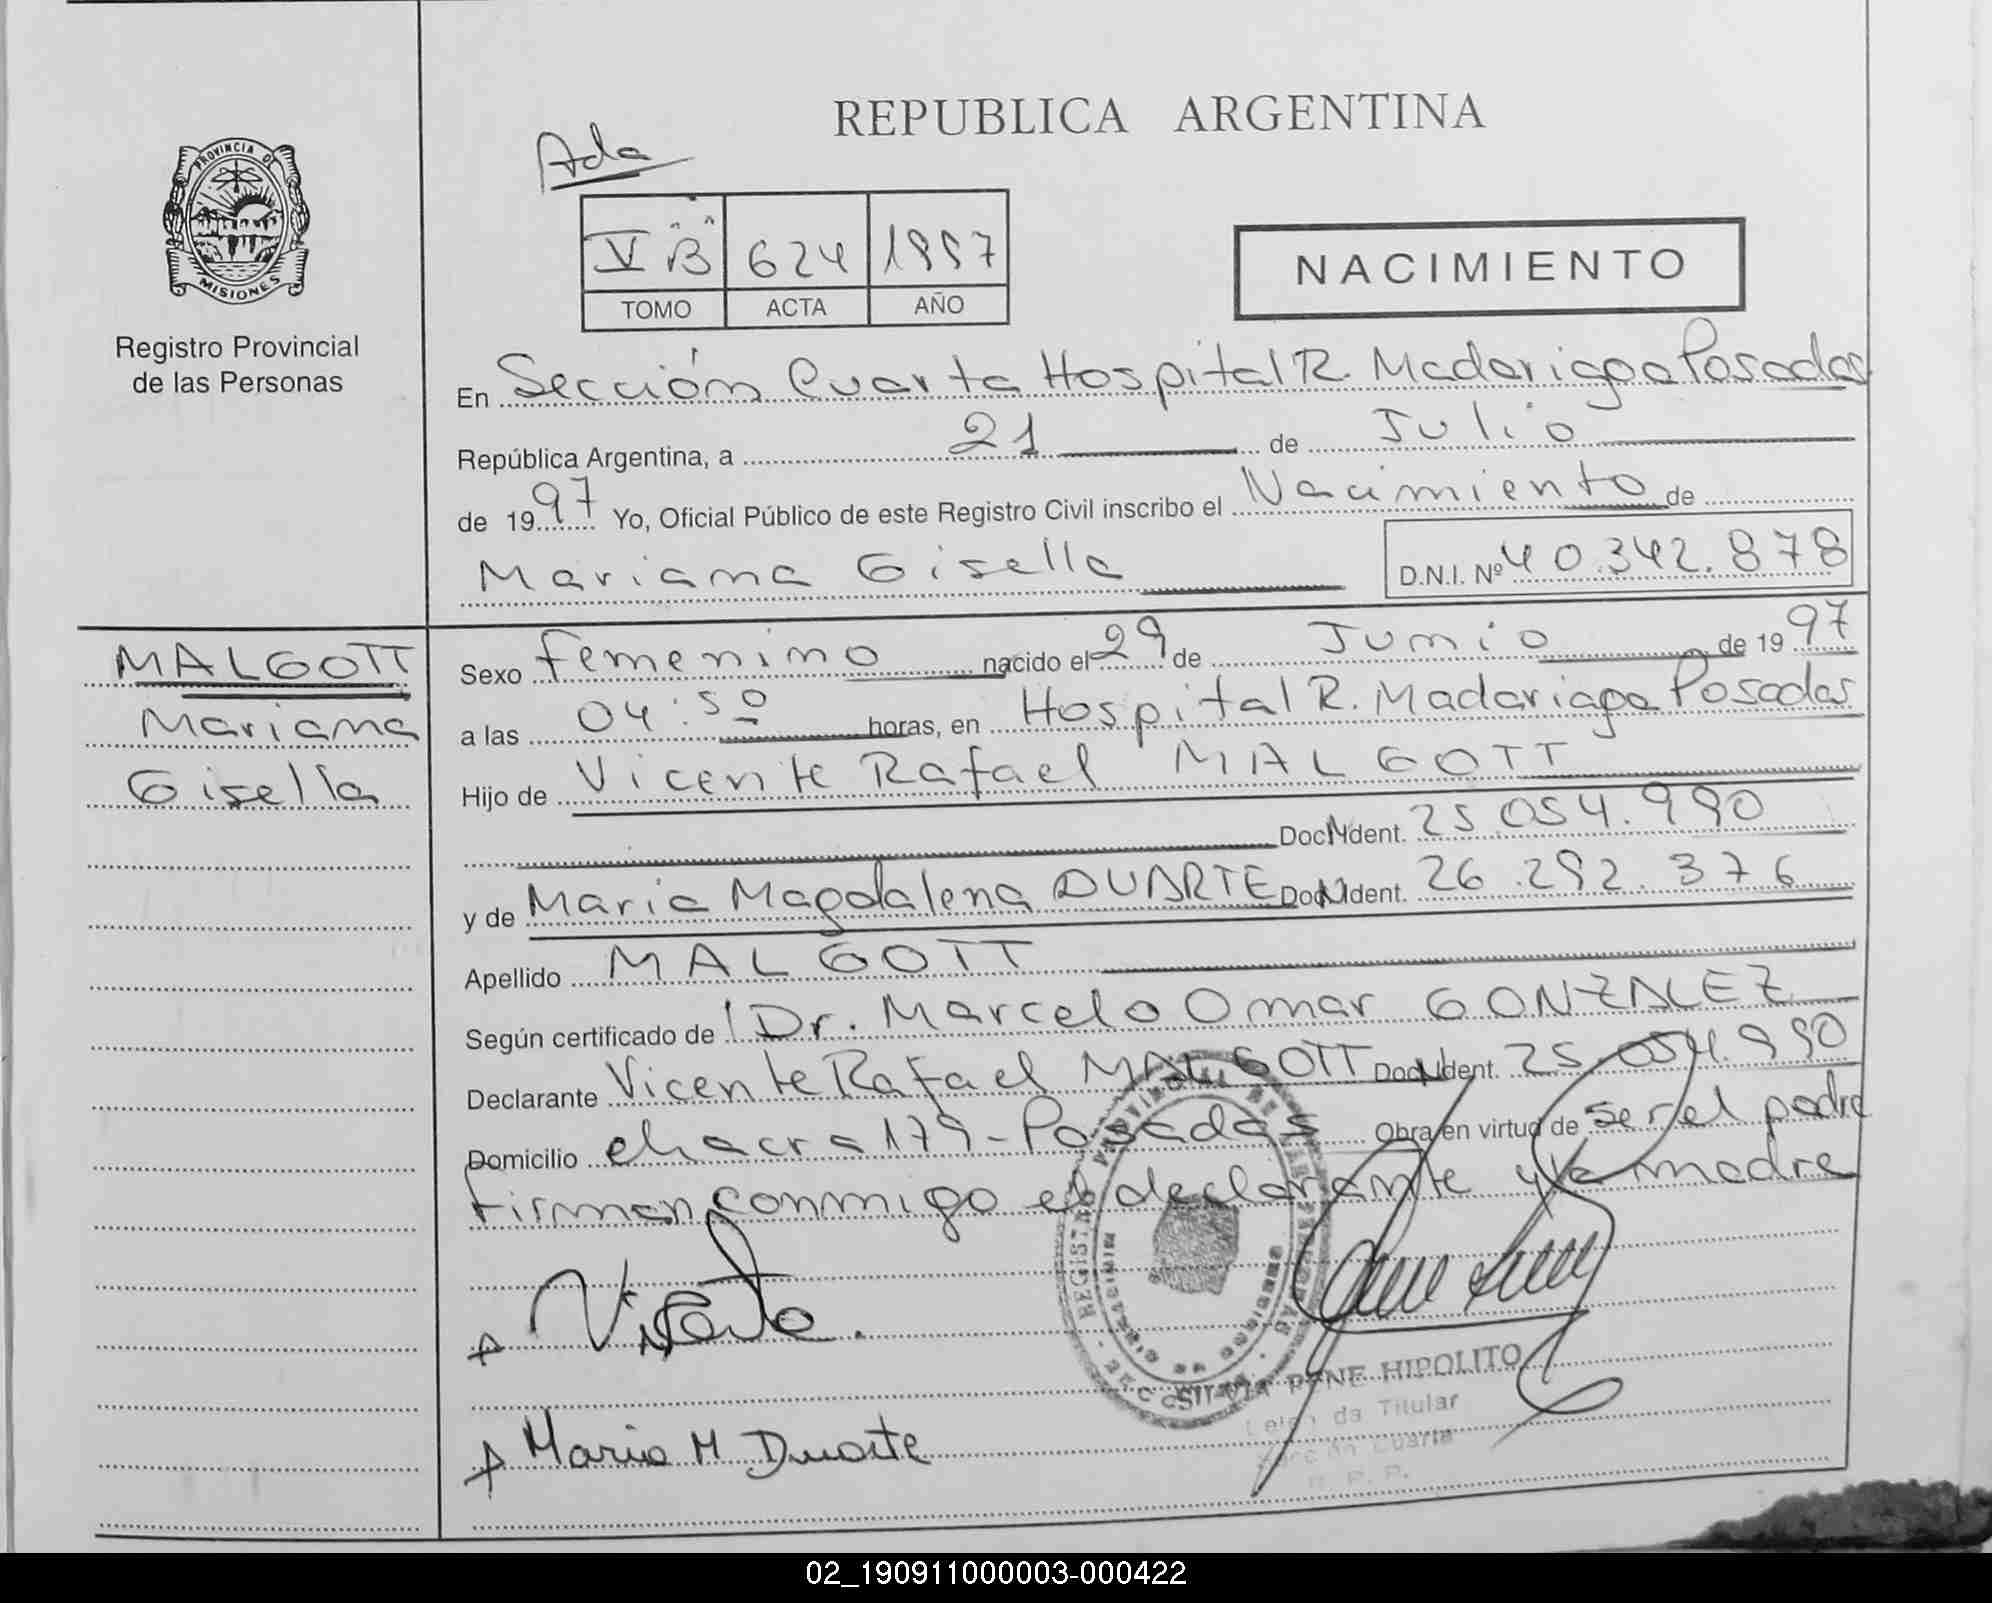 REPUBLICA ARGENTINA
Ada
V "B" 624 1997
TOMO ACTA AÑO
NACIMIENTO
PROVINCIA DE
MISIONES
Registro Provincial
de las Personas
En Sección Cuarta Hospital R. Madariaga Posadas
República Argentina, a 21 de Julio
de 1997 Yo, Oficial Público de este Registro Civil inscribo el Nacimiento de
Mariana Gisella D.N.I. Nº 40.342.878
MALGOTT
Mariana
Gisella
Sexo femenino nacido el 29 de Junio de 1997
a las 04:50 horas, en Hospital R. Madariaga Posadas
Hijo de Vicente Rafael MALGOTT
Doc. Ident. 25.054.990
y de Maria Magdalena DUARTE Doc. Ident. 26.292.376
Apellido MALGOTT
Según certificado de Dr. Marcelo Omar GONZALEZ
Declarante Vicente Rafael MALGOTT Doc. Ident. 25.054.990
Domicilio chacra 179 - Posadas Obra en virtud de ser el padre
firman conmigo el declarante y la madre
Maria M Duarte
HIPOLITO
da Titular
Cuarta
R. P. P.
02_190911000003-000422